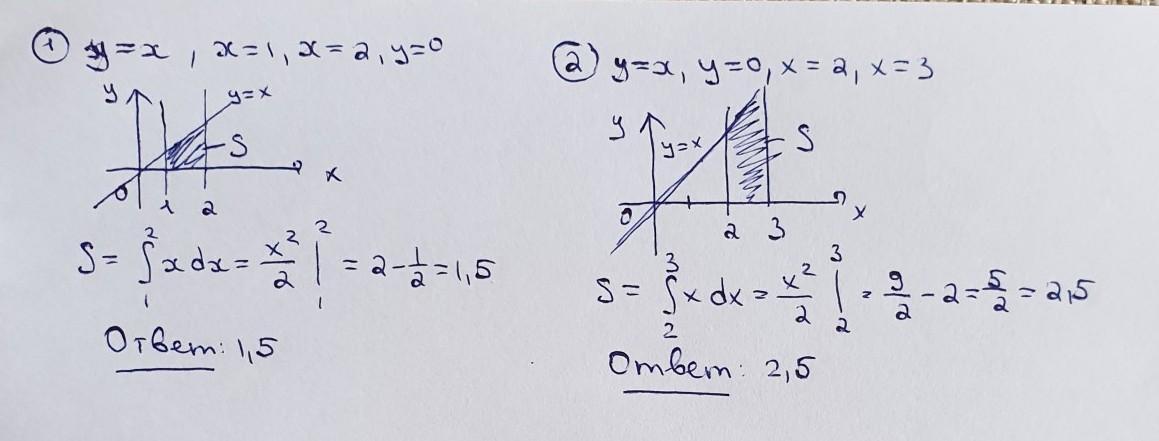 ① y=x, x=1, x=2, y=0
y
y=x
S
0
1
2
x
S = ∫₁² x dx = x²/2 |₁² = 2 - 1/2 = 1,5
Ответ: 1,5
② y=x, y=0, x=2, x=3
y
y=x
S
0
2
3
x
S = ∫₂³ x dx = x²/2 |₂³ = 9/2 - 2 = 5/2 = 2,5
Ответ: 2,5